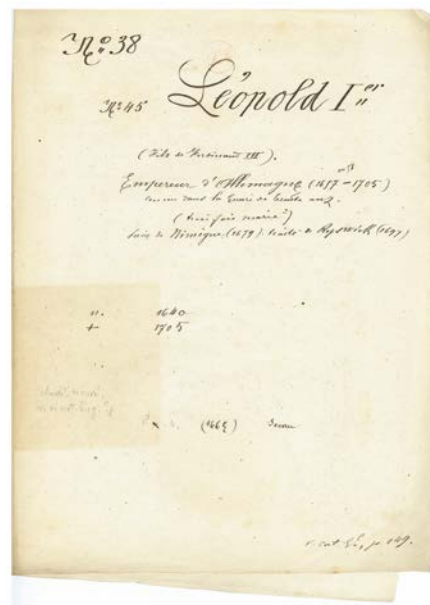 N.º 38
Nº 45 Léopold Ier
(Fils de Ferdinand III).
Empereur d'Allemagne (1657 - 1705)
dans la Guerre de trente ans
(trois fois marié)
Paix de Nimègue (1679) traité de Ryswick (1697)
n. 1640
+ 1705
(1665)
p. 149.